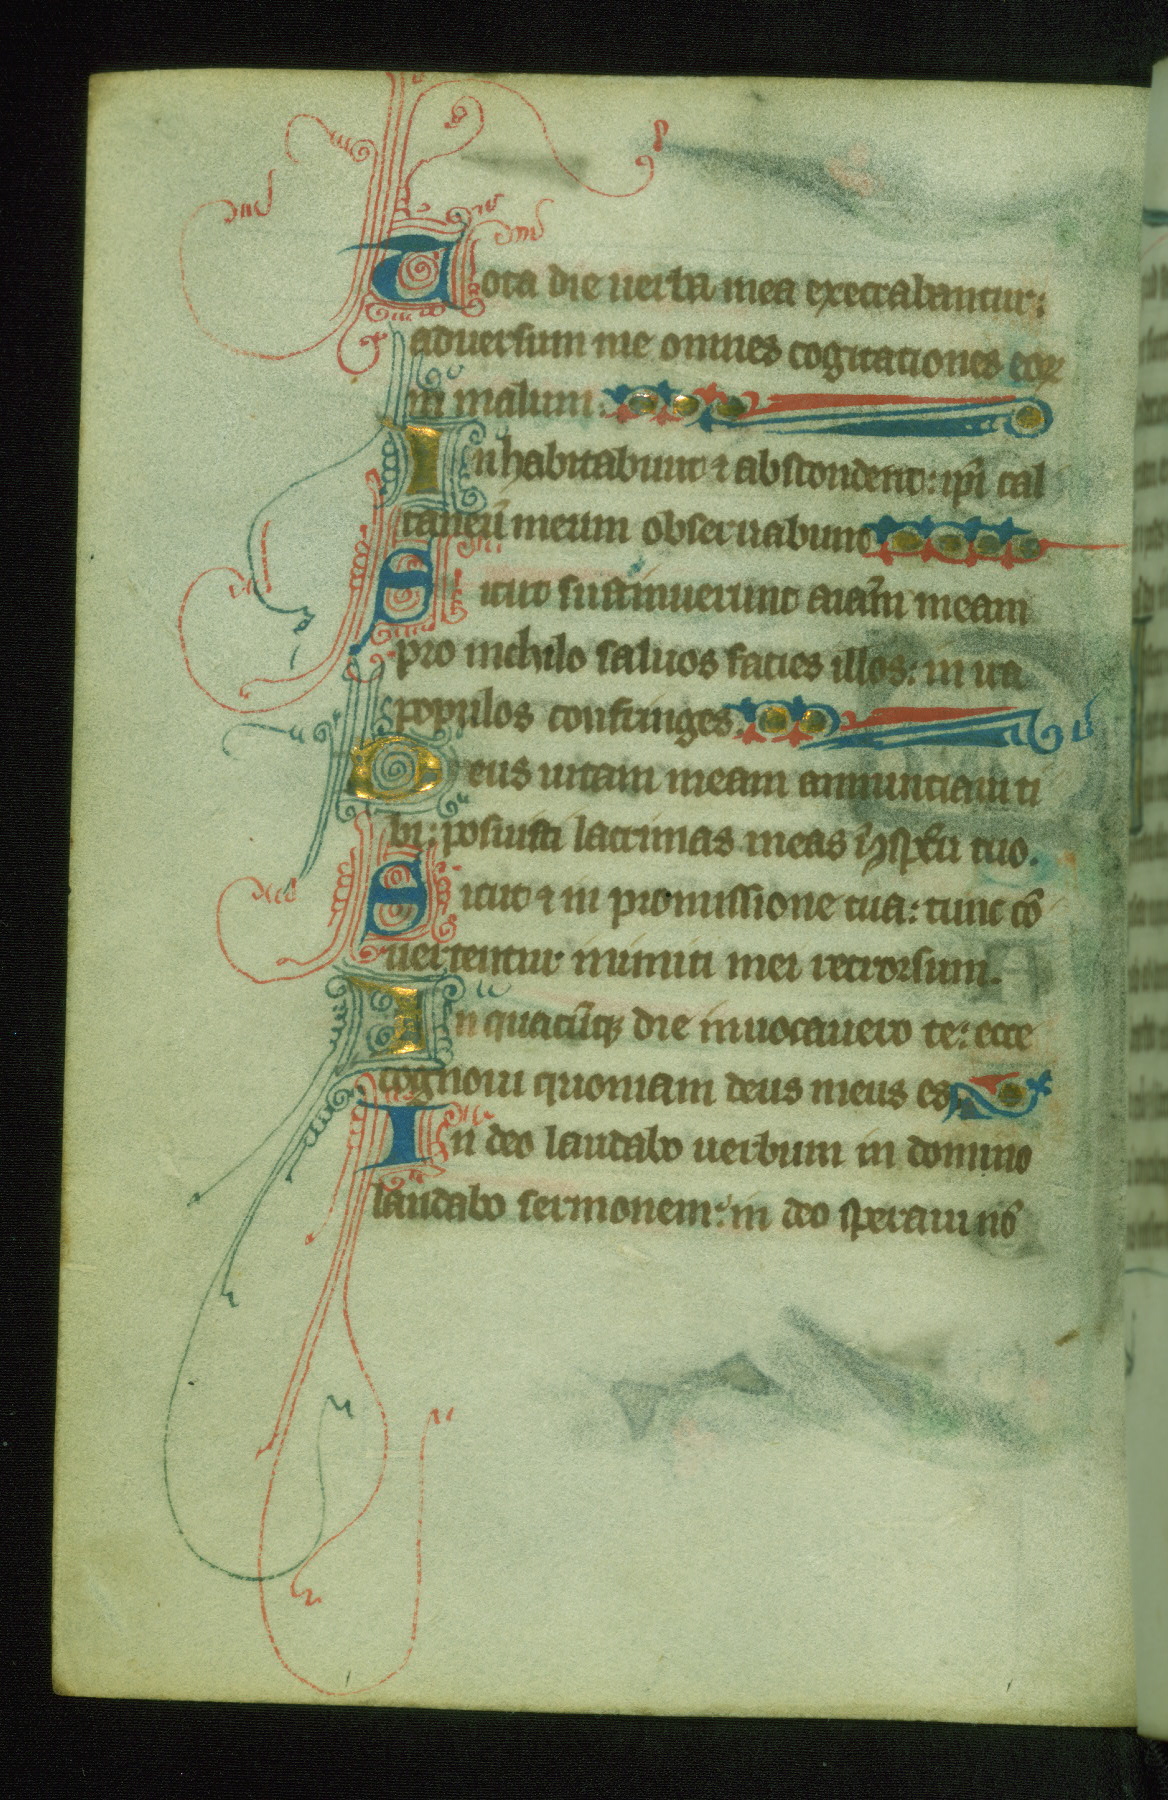 Tota die uerba mea execrabantur:
aduersum me omnes cogitationes eoꝝ
in malum:
Inhabitabunt ⁊ abscondent: ip̄i cal
caneū meum obseruabunt
Sicut sustinuerunt aīam meam
pro nichilo saluos facies illos: in ira
populos confringes.
Deus uitam meam annunciaui ti
bi: posuisti lacrimas meas ī ɔspc̄tu tuo.
Sicut ⁊ in promissione tua: tunc cō
uertentur inimici mei retrorsum.
In quacūqꝫ die inuocauero te: ecce
cognoui quoniam deus meus es
In deo laudabo uerbum in domino
laudabo sermonem: in deo speraui nō